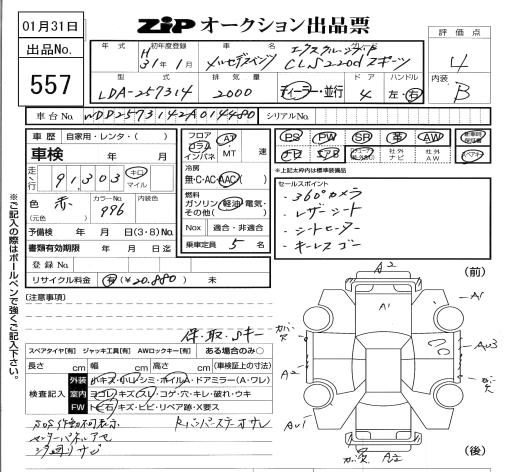 01月31日
ZIP オークション出品票
出品No.
557
年式 初年度登録 車名 グレード
H 31年1月 メルセデスベンツ CLS220d スポーツ
型式 排気量 ドア ハンドル
LDA-257314 2000 ディーラー・並行 4 左・右
評価点
4
内装
B
車台No. WDD2573142A014480 シリアルNo.
車歴 自家用・レンタ・( )
車検 年 月
走行 91,303 キロ マイル
色 赤 カラーNo. 996 内装色
(元色)
予備検 年 月 日(3・8)No.
書類有効期限 年 月 日迄
登録No.
リサイクル料金 有(¥20.880) 未
フロア コラム インパネ AT・MT 速
冷房
無・C・AC・AAC( )
燃料
ガソリン・軽油・電気・その他( )
Nox 適合・非適合
乗車定員 5名
PS PW SR 革 AW
ナビ 社外ナビ 社外AW
*上記太枠内は標準装備品
セールスポイント
・360°カメラ
・レザーシート
・シートヒーター
・キーレスゴー
(注意事項)
保・取・Sキー
スペアタイヤ[有] ジャッキ工具[有] AWロックキー[有] ある場合のみ○
長さ cm 幅 cm 高さ cm (車検証上の寸法)
検査記入
外装 小キズ・小凹・シミ・ホイルA・ドアミラー(A・ワレ)
室内 ヨゴレ・キズ・スレ・コゲ・穴・キレ・破れ・ウキ
FW トビ石・キズ・ヒビ・リペア跡・X要ス
SOS作動不可表示
(前)
(後)
A2
A1
A1
A2
AU3
AU1
A2
※ご記入の際はボールペンで強くご記入下さい。